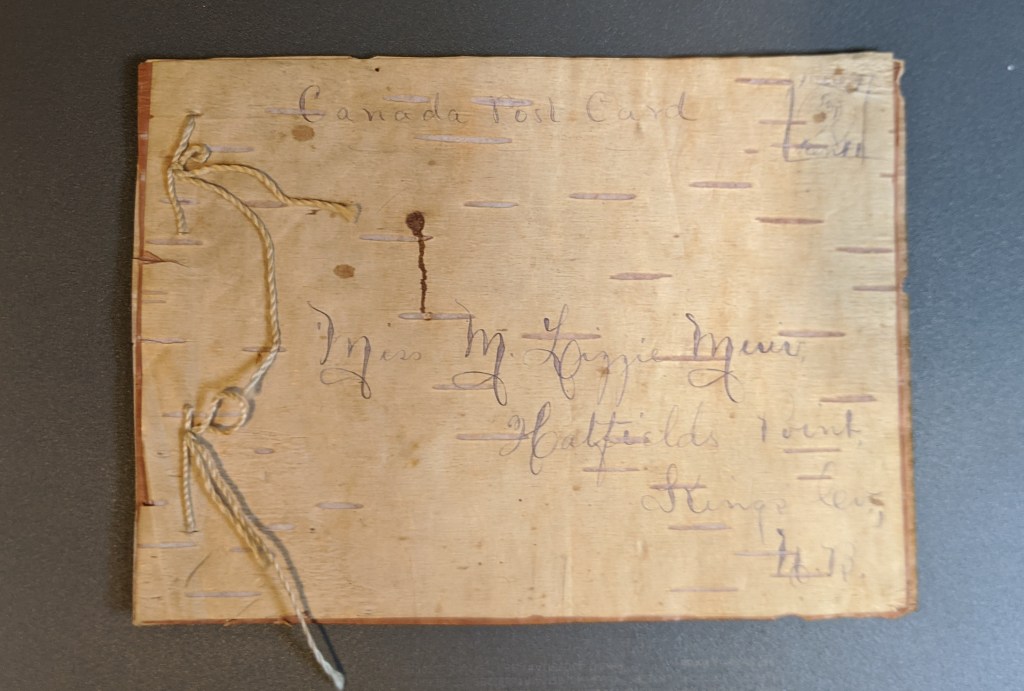 Canada Post Card
Miss M. Lizzie Muir,
Hatfields Point,
Kings Co.,
N.B.